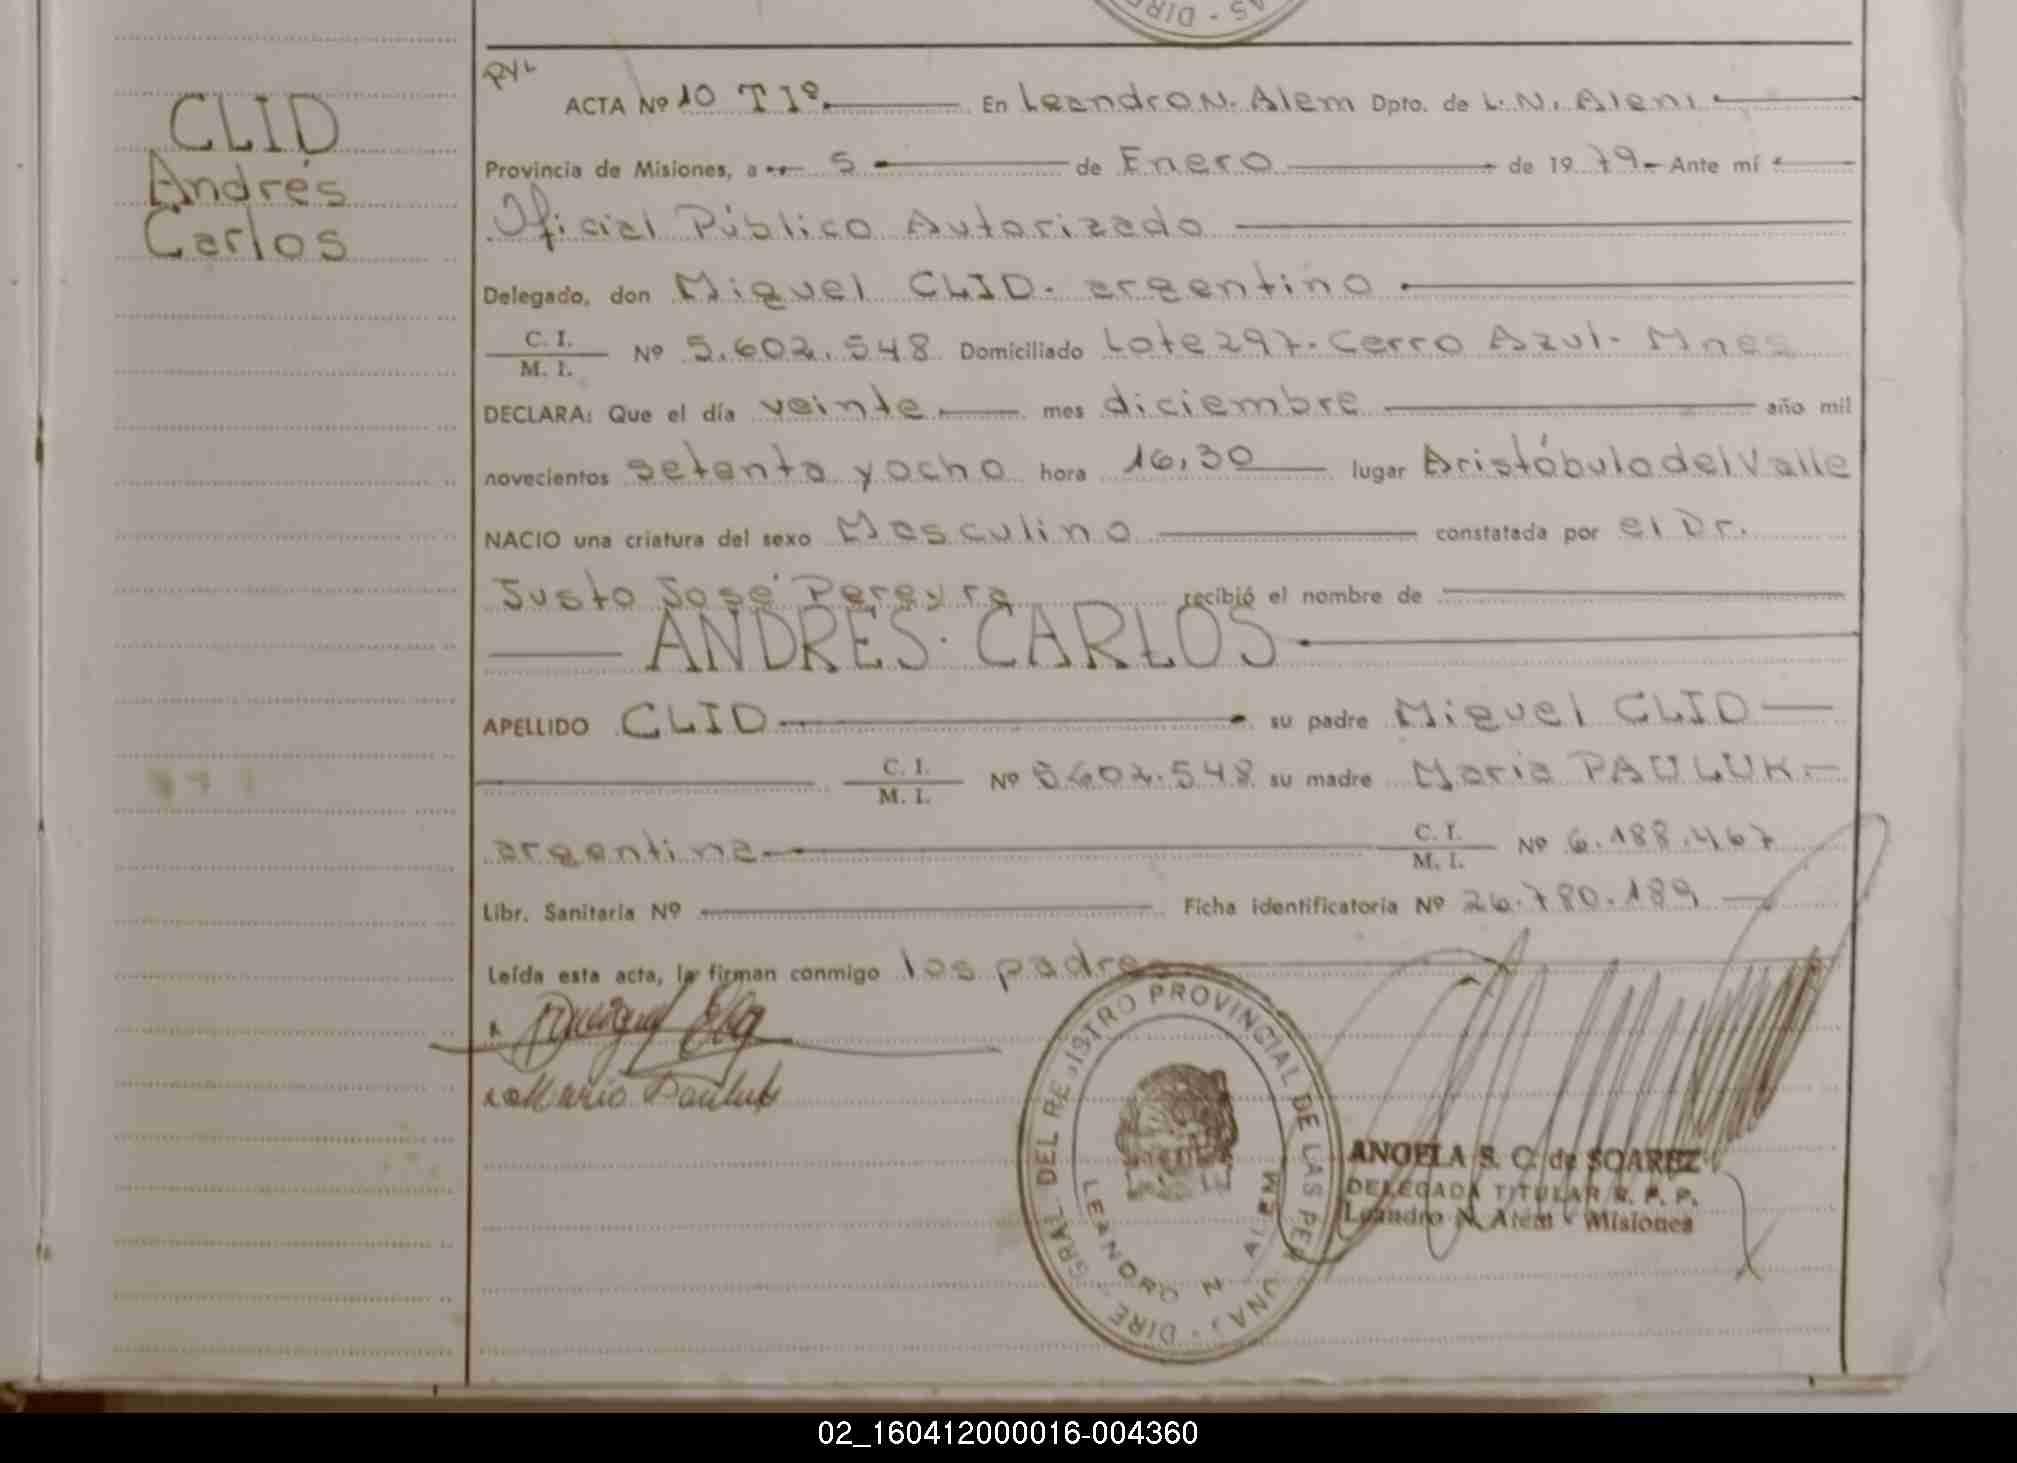 CLID
Andrés
Carlos
ACTA Nº 10 T Iº. En Leandro N. Alem Dpto. de L. N. Alem
Provincia de Misiones, a 5 de Enero de 1979.- Ante mí
Oficial Público Autorizado
Delegado, don Miguel CLID. argentino
C. I.
M. I. Nº 5.602.548 Domiciliado Lote 297. Cerro Azul. Mnes
DECLARA: Que el día veinte mes diciembre año mil
novecientos setenta y ocho hora 16,30 lugar Aristóbulo del Valle
NACIO una criatura del sexo Masculino constatada por el Dr.
Justo José Pereyra recibió el nombre de
ANDRES. CARLOS
APELLIDO CLID su padre Miguel CLID
C. I.
M. I. Nº 5.602.548 su madre Maria PAULUK.-
argentina C. I.
M. I. Nº 6.188.467
Libr. Sanitaria Nº Ficha identificatoria Nº 26.780.189
Leída esta acta, la firman conmigo los padres
Maria Pauluk
DIRE GRAL DEL RE ISTRO PROVINCIAL DE LAS PER UNAS
LEANDRO N ALEM
ANGELA S. C. de SOAREZ
DELEGADA TITULAR R. P. P.
Leandro N. Alem - Misiones
02_160412000016-004360